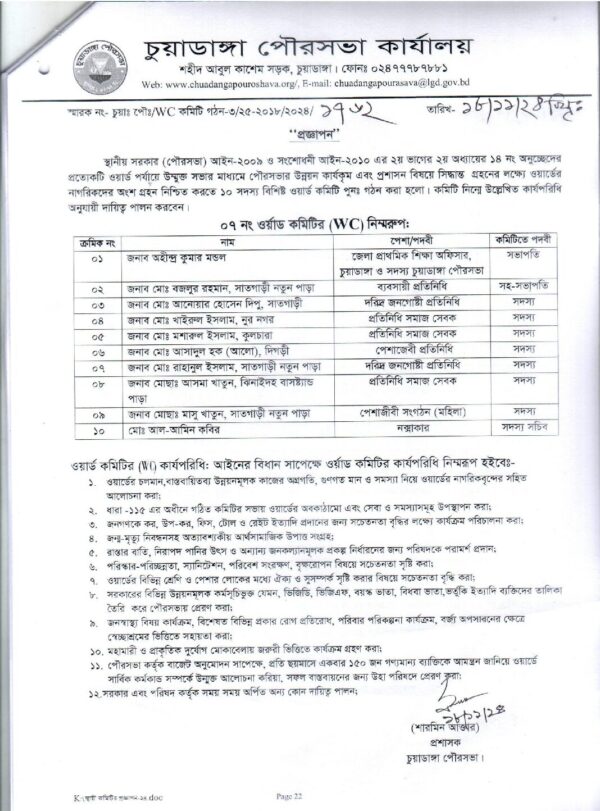 চুয়াডাঙ্গা পৌরসভা কার্যালয়
শহীদ আবুল কাশেম সড়ক, চুয়াডাঙ্গা। ফোনঃ ০২৪৭৭৭৮৭৮৮১
Web: www.chuadangapouroshava.org/, E-mail: chuadangapourasava@lgd.gov.bd
স্মারক নং- চুয়াঃ পৌঃ/WC কমিটি গঠন-৩/২৫-২০১৮/২০২৪/ ১৭৬২ তারিখ- ১৮/১১/২৪
"প্রজ্ঞাপন"
স্থানীয় সরকার (পৌরসভা) আইন-২০০৯ ও সংশোধনী আইন-২০১০ এর ২য় ভাগের ২য় অধ্যায়ের ১৪ নং অনুচ্ছেদের
প্রত্যেকটি ওয়ার্ড পর্যায়ে উন্মুক্ত সভার মাধ্যমে পৌরসভার উন্নয়ন কার্যকৃম এবং প্রশাসন বিষয়ে সিদ্ধান্ত গ্রহনের লক্ষ্যে ওয়ার্ডের
নাগরিকদের অংশ গ্রহন নিশ্চিত করতে ১০ সদস্য বিশিষ্ট ওয়ার্ড কমিটি পুনঃ গঠন করা হলো। কমিটি নিম্নে উল্লেখিত কার্যপরিধি
অনুযায়ী দায়িত্ব পালন করবেন।
০৭ নং ওর্য়াড কমিটির (WC) নিম্মরুপ:
ক্রমিক নং নাম পেশা/পদবী কমিটিতে পদবী
০১ জনাব অহীন্দ্র কুমার মন্ডল জেলা প্রাথমিক শিক্ষা অফিসার, সভাপতি
চুয়াডাঙ্গা ও সদস্য চুয়াডাঙ্গা পৌরসভা
০২ জনাব মোঃ বজলুর রহমান, সাতগাড়ী নতুন পাড়া ব্যবসায়ী প্রতিনিধি সহ-সভাপতি
০৩ জনাব মোঃ আনোয়ার হোসেন দিপু, সাতগাড়ী দরিদ্র জনগোষ্টী প্রতিনিধি সদস্য
০৪ জনাব মোঃ খাইরুল ইসলাম, নুর নগর প্রতিনিধি সমাজ সেবক সদস্য
০৫ জনাব মোঃ মশারুল ইসলাম, কুলচারা প্রতিনিধি সমাজ সেবক সদস্য
০৬ জনাব মোঃ আসাদুল হক (আলো), দিগড়ী পেশাজেবী প্রতিনিধি সদস্য
০৭ জনাব মোঃ রাহানুল ইসলাম, সাতগাড়ী নতুন পাড়া দরিদ্র জনগোষ্টী প্রতিনিধি সদস্য
০৮ জনাব মোছাঃ আসমা খাতুন, ঝিনাইদহ বাসষ্ট্যান্ড প্রতিনিধি সমাজ সেবক সদস্য
পাড়া
০৯ জনাব মোছাঃ মাসু খাতুন, সাতগাড়ী নতুন পাড়া পেশাজীবী সংগঠন (মহিলা) সদস্য
১০ মোঃ আল-আমিন কবির নক্সাকার সদস্য সচিব
ওয়ার্ড কমিটির (WC) কার্যপরিধি: আইনের বিধান সাপেক্ষে ওর্য়াড কমিটির কার্যপরিধি নিম্মরূপ হইবেঃ-
১. ওয়ার্ডের চলমান,বাস্তবায়িতব্য উন্নয়নমূলক কাজের অগ্রগতি, গুণগত মান ও সমস্যা নিয়ে ওয়ার্ডের নাগরিকবৃন্দের সহিত
আলোচনা করা;
২. ধারা -১১৫ এর অধীনে গঠিত কমিটির সভায় ওয়ার্ডের অবকাঠামো এবং সেবা ও সমস্যাসমূহ উপস্থাপন করা;
৩. জনগণকে কর, উপ-কর, ফিস, টোল ও রেইট ইত্যাদি প্রদানের জন্য সচেতনতা বৃদ্ধির লক্ষ্যে কার্যক্রম পরিচালনা করা;
৪. জন্ম-মৃত্যু নিবন্ধনসহ অত্যাবশ্যকীয় আর্থসামাজিক উপাত্ত সংগ্রহ;
৫. রাস্তার বাতি, নিরাপদ পানির উৎস ও অন্যান্য জনকল্যানমূলক প্রকল্প নির্ধারনের জন্য পরিষদকে পরামর্শ প্রদান;
৬. পরিস্কার-পরিচ্ছন্নতা, স্যানিটেশন, পরিবেশ সংরক্ষণ, বৃক্ষরোপন বিষয়ে সচেতনতা সৃষ্টি করা;
৭. ওয়ার্ডের বিভিন্ন শ্রেণি ও পেশার লোকের মধ্যে ঐক্য ও সুসম্পর্ক সৃষ্টি করার বিষয়ে সচেতনতা বৃদ্ধি করা;
৮. সরকারের বিভিন্ন উন্নয়নমূলক কর্মসূচিভুক্ত যেমন, ভিজিডি, ভিজিএফ, বয়স্ক ভাতা, বিধবা ভাতা,ভর্তুকি ইত্যাদি ব্যক্তিদের তালিকা
তৈরি করে পৌরসভায় প্রেরণ করা;
৯. জনস্বাস্থ্য বিষয় কার্যক্রম, বিশেষত বিভিন্ন প্রকার রোগ প্রতিরোধ, পরিবার পরিকল্পনা কার্যক্রম, বর্জ্য অপসারনের ক্ষেত্রে
স্বেচ্ছাশ্রমের ভিত্তিতে সহায়তা করা;
১০. মহামারী ও প্রাকৃতিক দুর্যোগ মোকাবেলায় জরুরী ভিত্তিতে কার্যক্রম গ্রহণ করা;
১১. পৌরসভা কর্তৃক বাজেট অনুমোদন সাপেক্ষে, প্রতি ছয়মাসে একবার ১৫০ জন গণ্যমান্য ব্যাক্তিকে আমন্ত্রন জানিয়ে ওয়ার্ডে
সার্বিক কর্মকান্ড সম্পর্কে উন্মুক্ত আলোচনা করিয়া, সফল বাস্তবায়নের জন্য উহা পরিষদে প্রেরণ করা;
১২.সরকার এবং পরিষদ কর্তৃক সময় সময় অর্পিত অন্য কোন দায়িত্ব পালন;
১৮/১১/২৪
(শারমিন আক্তার)
প্রশাসক
চুয়াডাঙ্গা পৌরসভা।
K:\স্থায়ী কমিটির প্রজ্ঞাপন-২৪.doc Page 22